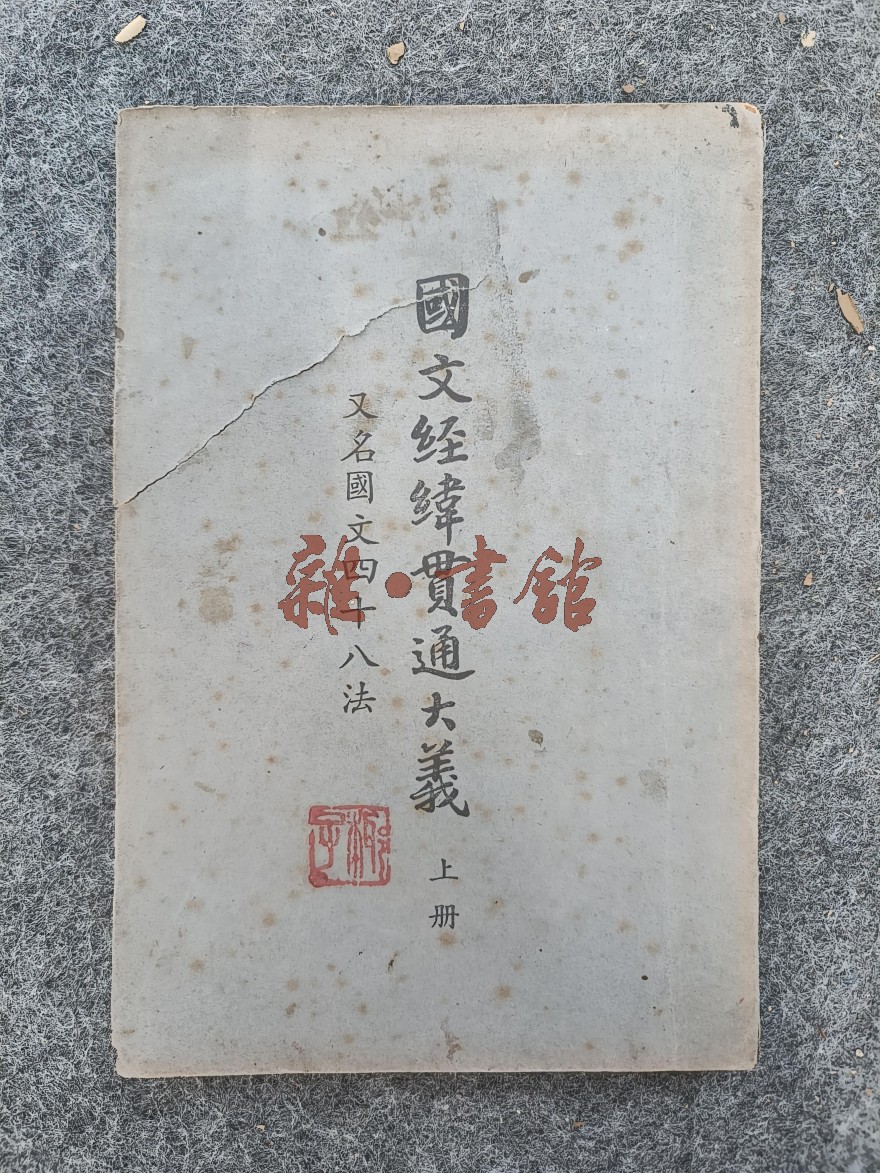 國文经緯貫通大義
上册
又名國文四十八法
雜·書館